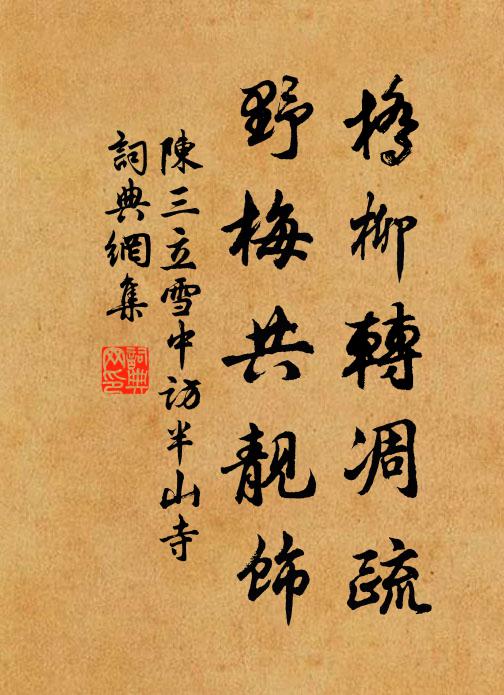 橋柳轉凋疏
野梅共靚飾
陳三立雪中訪半山寺
詞典網集
詞典网印